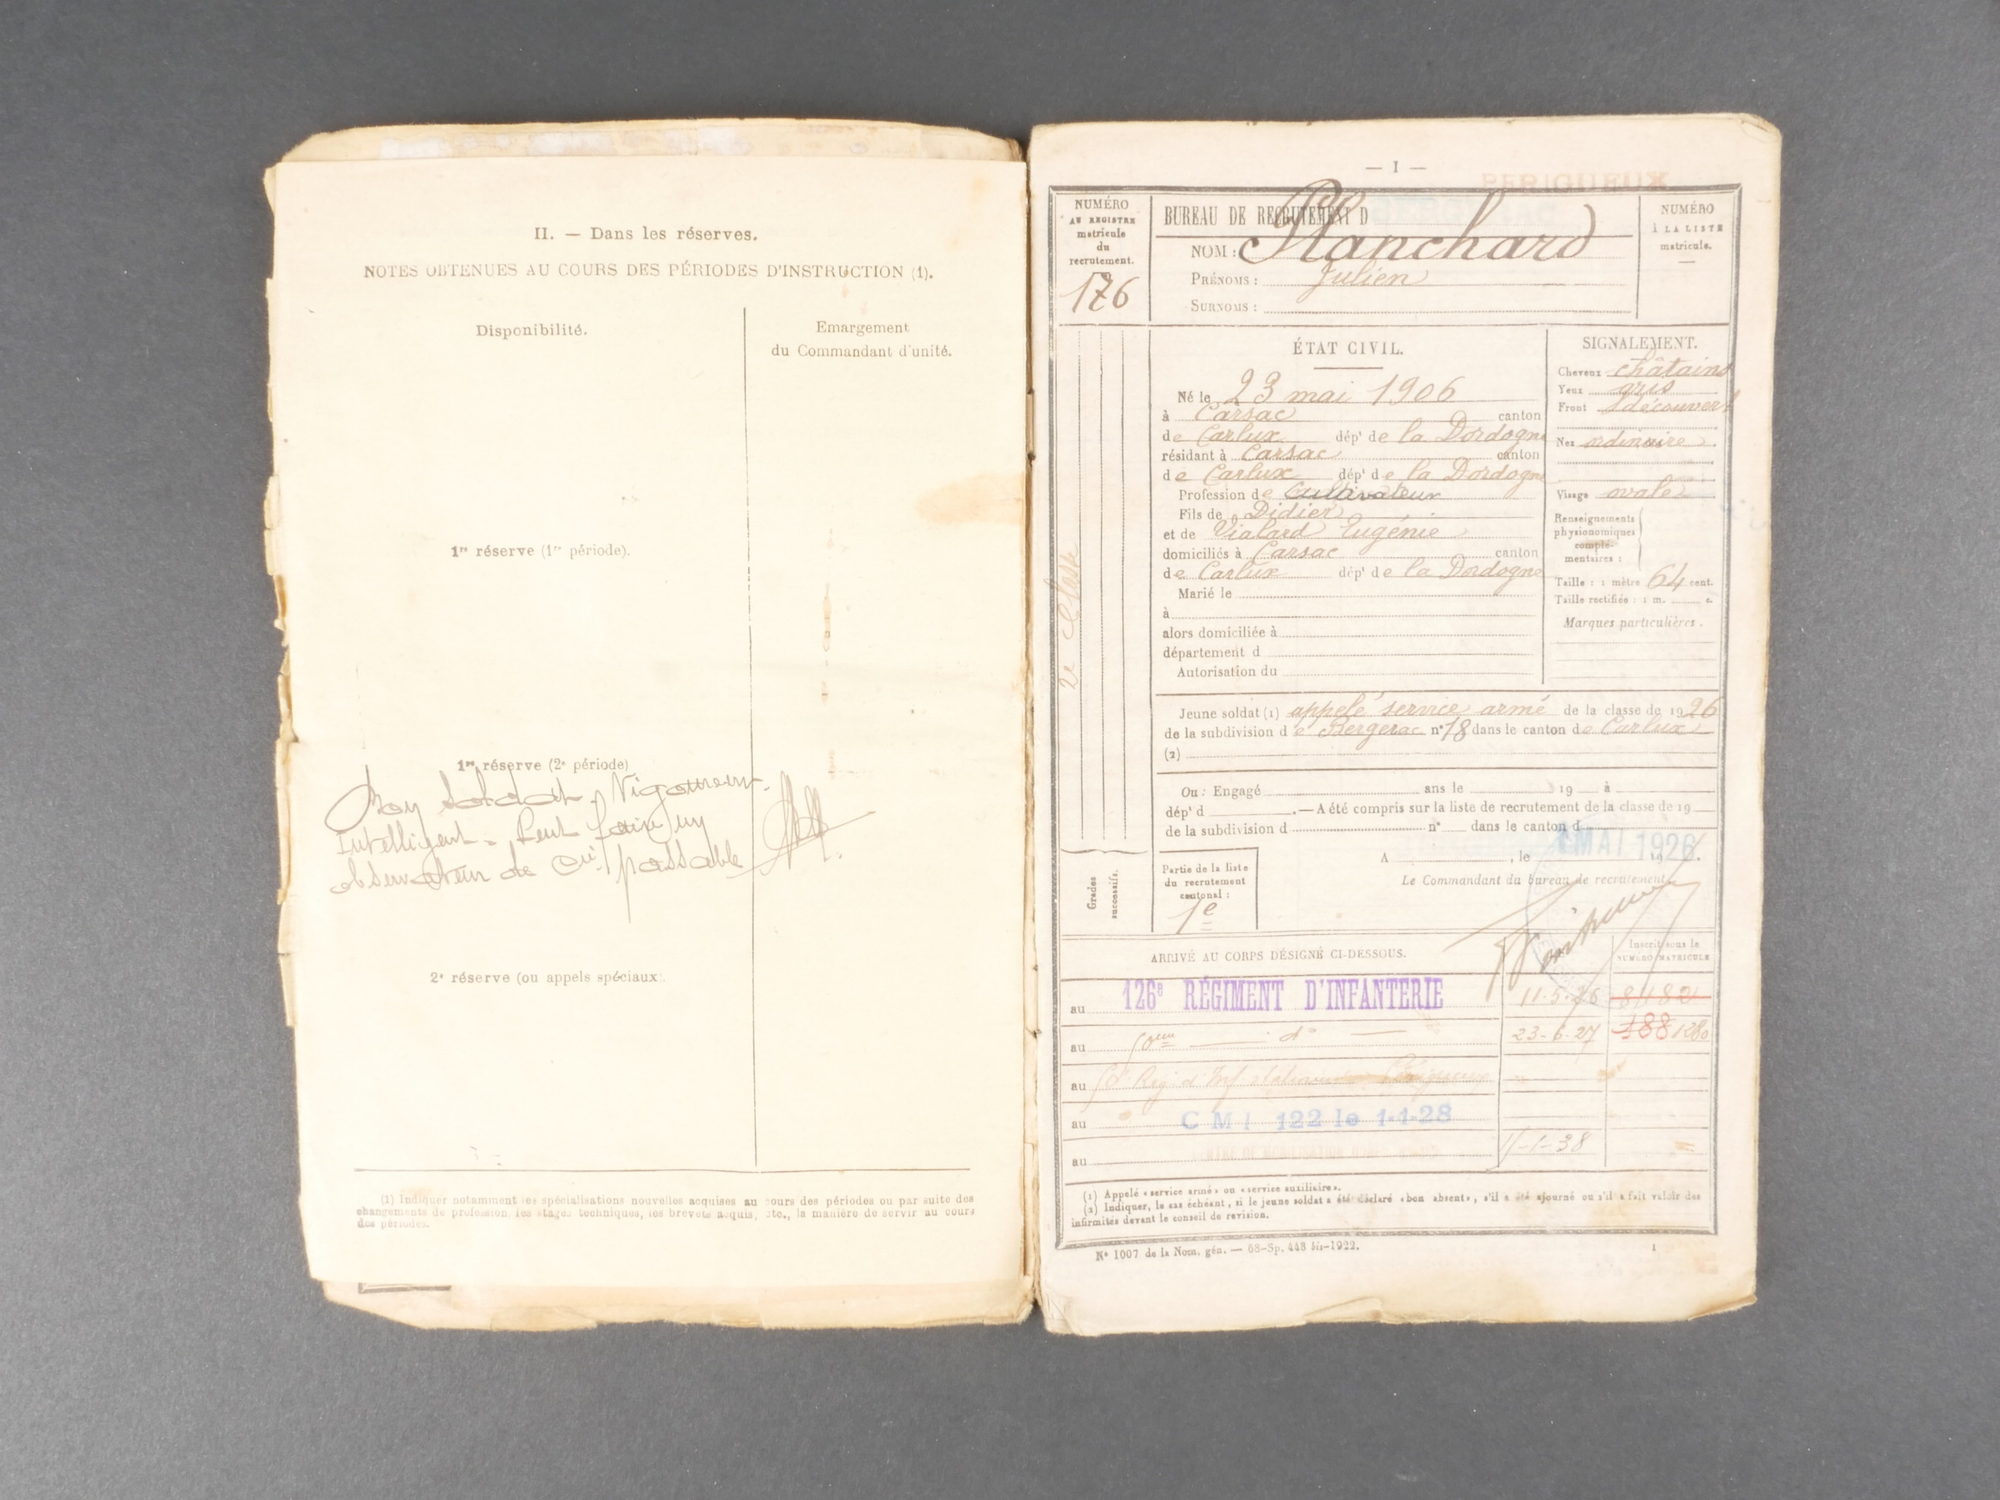 II. — Dans les réserves.
NOTES OBTENUES AU COURS DES PÉRIODES D'INSTRUCTION (1).
Disponibilité.
Emargement
du Commandant d'unité.
1re réserve (1re période).
1re réserve (2e période)
Bon soldat. Vigoureux.
Intelligent. Peut faire un
observateur de passable
2e réserve (ou appels spéciaux).
(1) Indiquer notamment les spécialisations nouvelles acquises au cours des périodes ou par suite des
changements de profession, les stages techniques, les brevets acquis, etc., la manière de servir au cours
des périodes.
— I —
PERIGUEUX
NUMÉRO
AU REGISTRE
matricule
du
recrutement.
176
BUREAU DE RECRUTEMENT D
NOM : Planchard
PRÉNOMS : Julien
SURNOMS :
NUMÉRO
À LA LISTE
matricule.
2e Classe
Grades
successifs.
ÉTAT CIVIL.
Né le 23 mai 1906
à Carsac canton
de Carlux dépt de la Dordogne
résidant à Carsac canton
de Carlux dépt de la Dordogne
Profession de Cultivateur
Fils de Didier
et de Vialard Eugénie
domiciliés à Carsac canton
de Carlux dépt de la Dordogne
Marié le
à
alors domiciliée à
département d
Autorisation du
SIGNALEMENT.
Cheveux châtains
Yeux gris
Front découvert
Nez ordinaire
Visage ovale
Renseignements
physionomiques
complé-
mentaires :
Taille : 1 mètre 64 cent.
Taille rectifiée : 1 m. c.
Marques particulières.
Jeune soldat (1) appelé service armé de la classe de 1926
de la subdivision de Bergerac n° 18 dans le canton de Carlux
(2)
Ou : Engagé ans le 19 à
dépt d .— A été compris sur la liste de recrutement de la classe de 19
de la subdivision d n° dans le canton d
A , le MAI 1926.
Le Commandant du bureau de recrutement,
Partie de la liste
du recrutement
cantonal :
1e
ARRIVÉ AU CORPS DÉSIGNÉ CI-DESSOUS.
Inscrit sous le
NUMÉRO MATRICULE
au 126e RÉGIMENT D'INFANTERIE 11-5-26 8180
au 50eme — do — 23-6-27 188 1280
au
au C M I 122 le 1-1-28
au 1-1-38
(1) Appelé «service armé» ou «service auxiliaire».
(2) Indiquer, le cas échéant, si le jeune soldat a été déclaré «bon absent», s'il a été ajourné ou s'il a fait valoir des
infirmités devant le conseil de revision.
N° 1007 de la Nom. gén. — 68-Sp. 443 bis-1922.
1